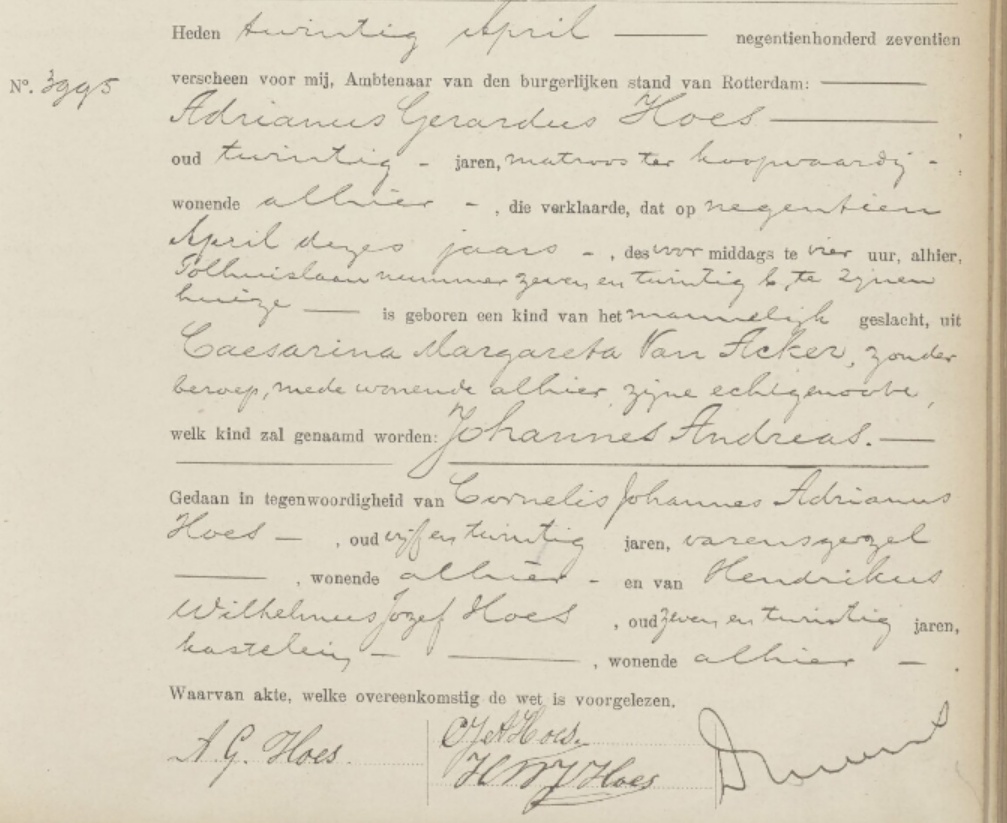 Heden twintig April negentienhonderd zeventien
verscheen voor mij, Ambtenaar van den burgerlijken stand van Rotterdam:
Nº. 3995
Adrianus Gerardus Hoes
oud twintig - jaren, matroos ter koopvaardij -
wonende alhier - , die verklaarde, dat op negentien
April dezes jaars - , des voor middags te vier uur, alhier,
Tolhuislaan nummer zeven en twintig b, te zijnen
huize is geboren een kind van het mannelijk geslacht, uit
Caesarina Margareta Van Acker, zonder
beroep, mede wonende alhier, zijne echtgenoote,
welk kind zal genaamd worden: Johannes Andreas.
Gedaan in tegenwoordigheid van Cornelis Johannes Adrianus
Hoes - , oud vijf en twintig jaren, varensgezel
, wonende alhier - en van Hendrikus
Wilhelmus Jozef Hoes , oud zeven en twintig jaren,
kastelein - , wonende alhier - .
Waarvan akte, welke overeenkomstig de wet is voorgelezen.
A. G. Hoes.
CJAHoes.
HWJHoes